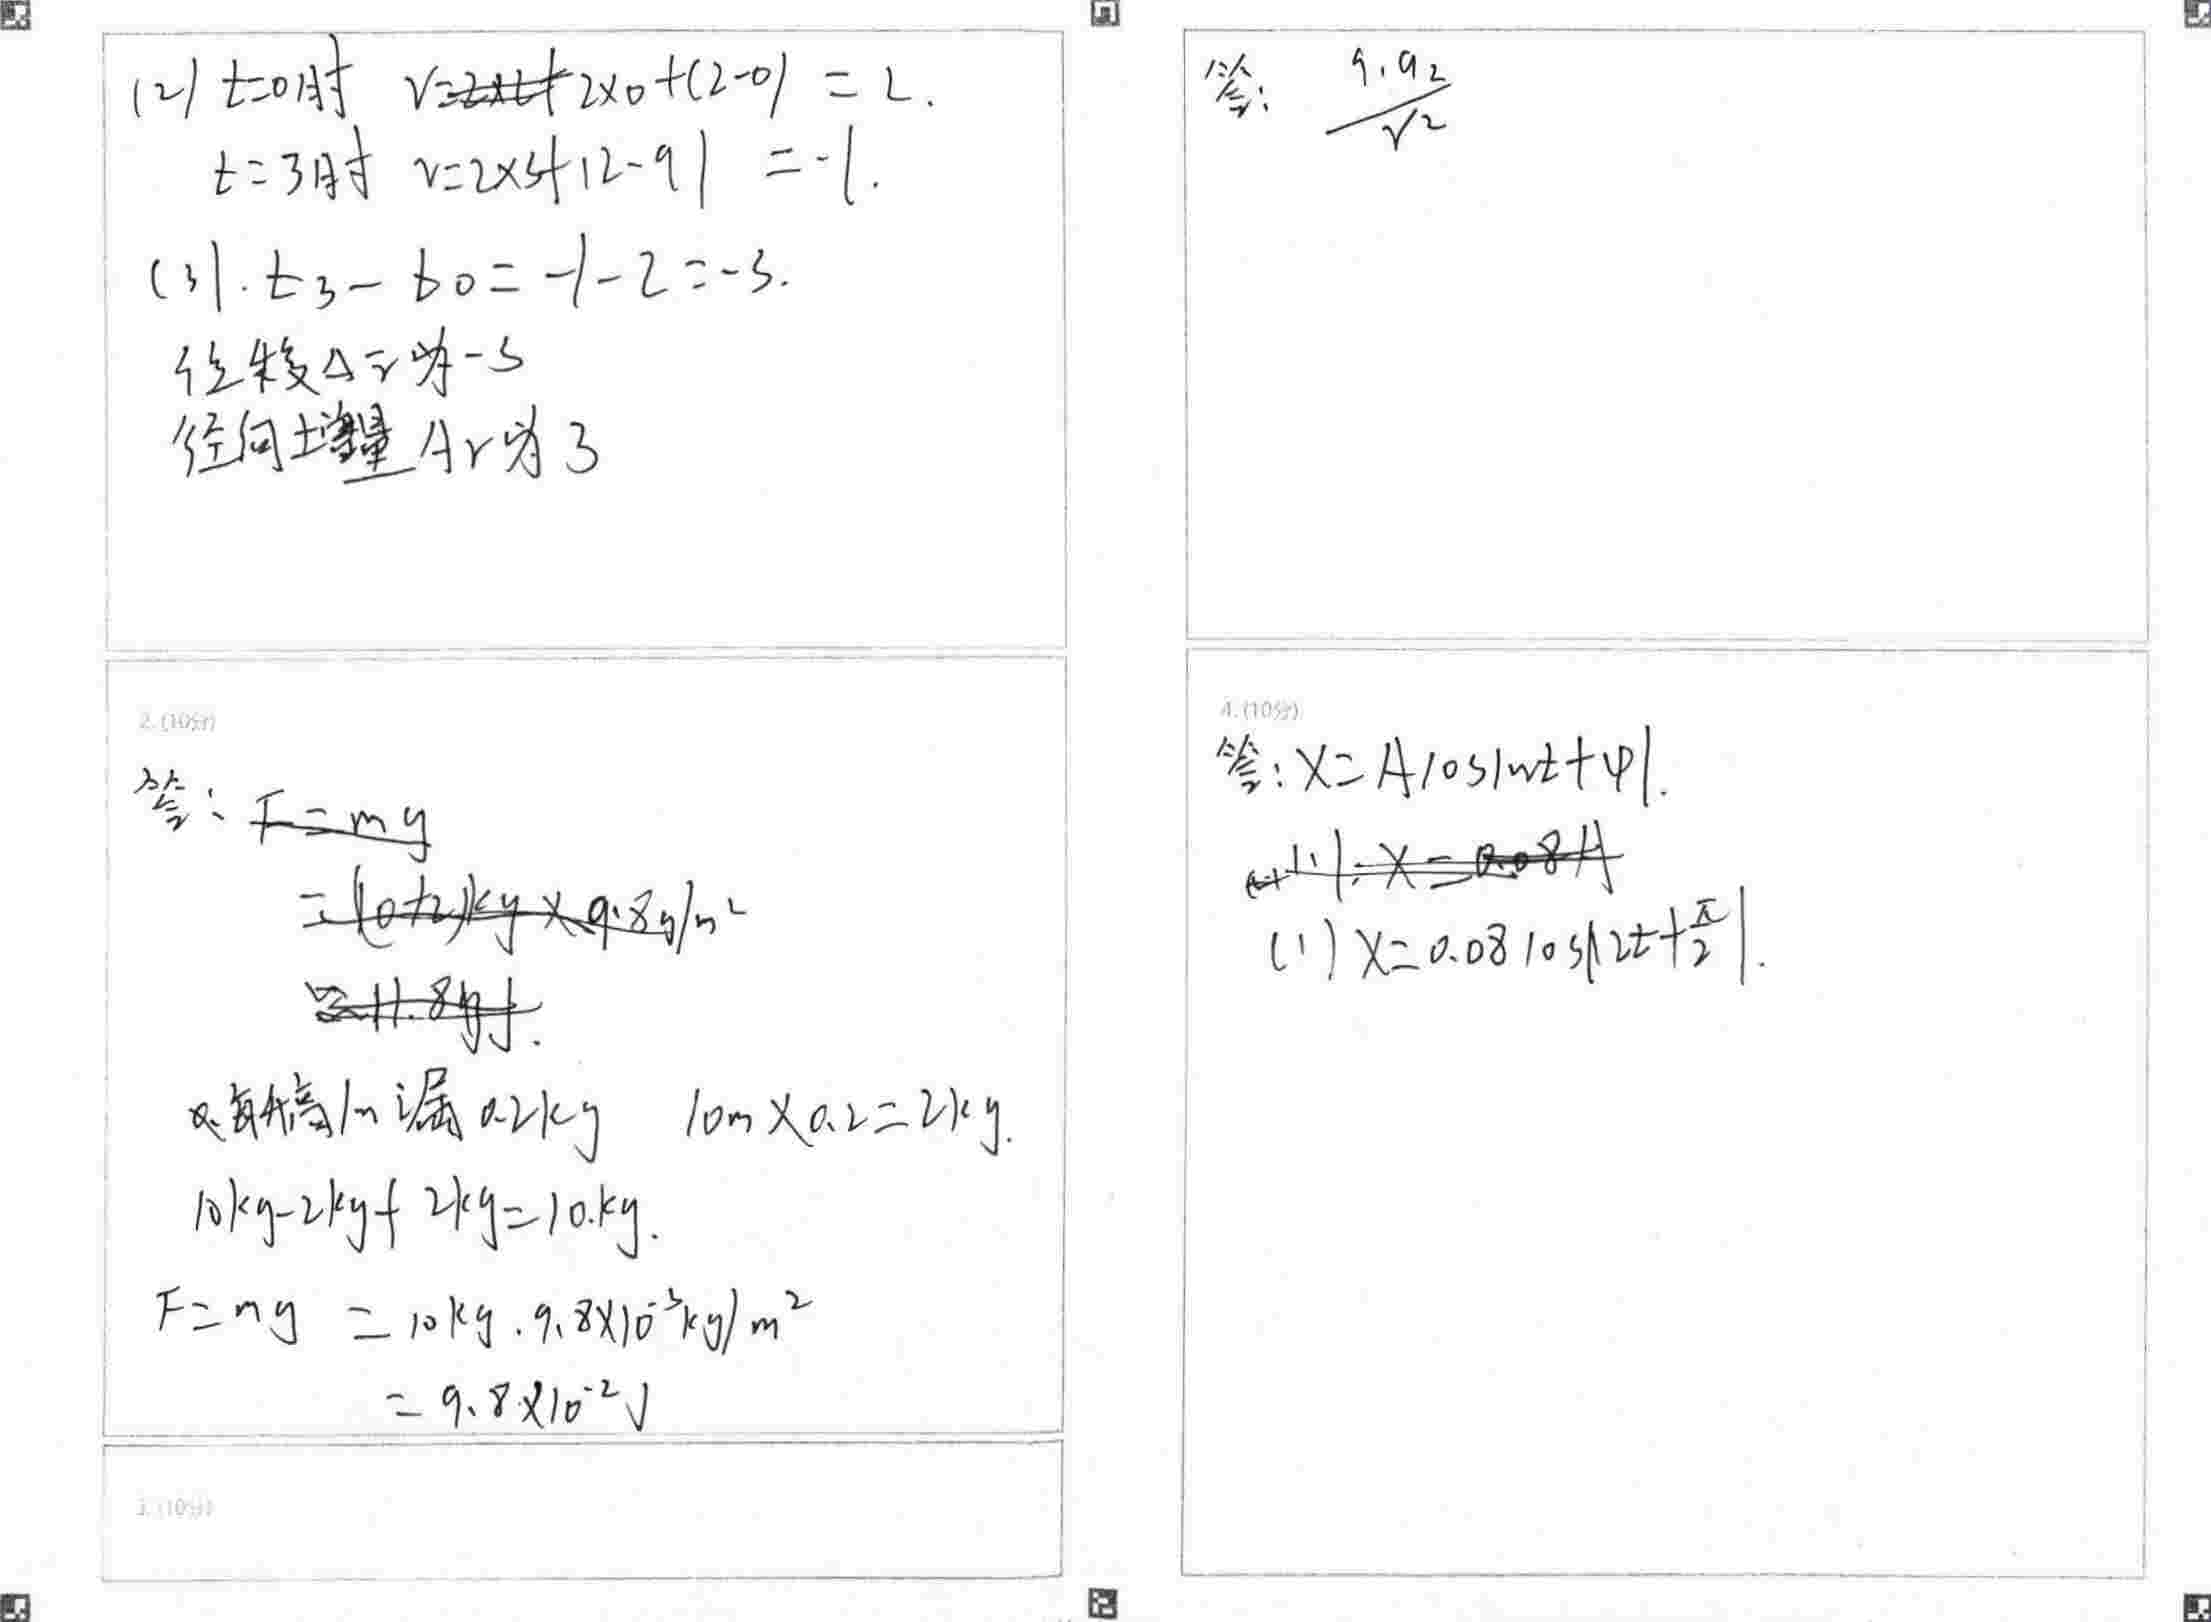 (2) t=0时 r=2×0+(2-0) = 2.
t=3时 r=2×3+(2-9) = -1.
(3). t3 - t0 = -1-2 = -3.
位移Δr为-3
径向增量Δr为3
2.(10分)
答: F=mg
=(10+2)kg×9.8g/m²
=11.8gJ.
每升高1m漏0.2kg 10m×0.2=2kg.
10kg-2kg+2kg=10.kg.
F=mg =10kg.9.8×10⁻³kg/m²
=9.8×10⁻²J
3.(10分)
答: q₁q₂/r²
4.(10分)
答: x=Acos(ωt+φ).
(1). x=0.08A
(1) x=0.08cos(2t+π/2).